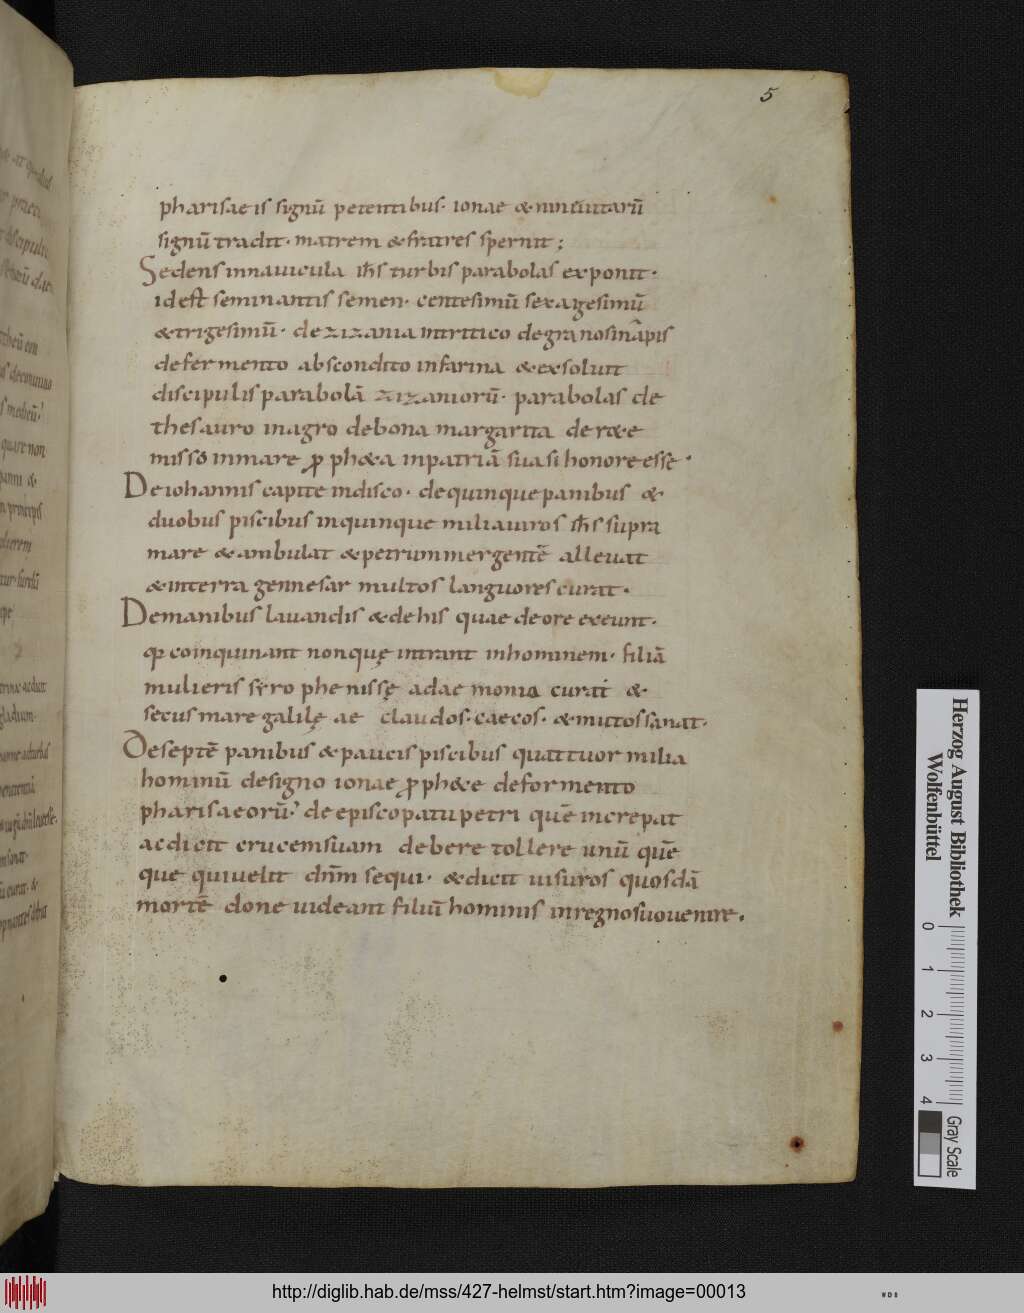 5
pharisaeis signū petentibus· ionae & niniuitarū
signū tradit· matrem & fratres spernit;
Sedens innauicula ihs̄ turbis parabolas exponit·
idest seminantis semen· centesimū sexagesimū
& trigesimū· dezizania intritico degranosinapis
defermento abscondito infarina & exsoluit
discipulis parabolā zizaniorū· parabolas de
thesauro inagro debona margarita der&e
misso inmare ꝓph&a inpatriā suasi honore esse·
Deiohannis capite indisco· dequinquepanibus &
duobus piscibus inquinque miliauiros ihs̄ supra
mare & ambulat & petrummergentē alleuat
& interra gennesar multos languores curat·
Demanibus lauandis & dehis quae deore exeunt·
coinquinant nonquę intrant inhominem· filiā
mulieris syrophenissę adaemonio curat &
secus mare galilęae claudos· caecos· & mutos sanat·
Deseptē panibus & paucis piscibus quattuor milia
hominū designo ionae ꝓph&e defermento
pharisaeorū· deepiscopatupetri quē increpat
acdicit crucemsuam debere tollere unū quē
que quiuelit dn̄m sequi· & dicit uisuros quosdā
mortē done uideant filiū hominis inregnosuouenire·
Herzog August Bibliothek
Wolfenbüttel
0 1 2 3 4
Gray Scale
http://diglib.hab.de/mss/427-helmst/start.htm?image=00013